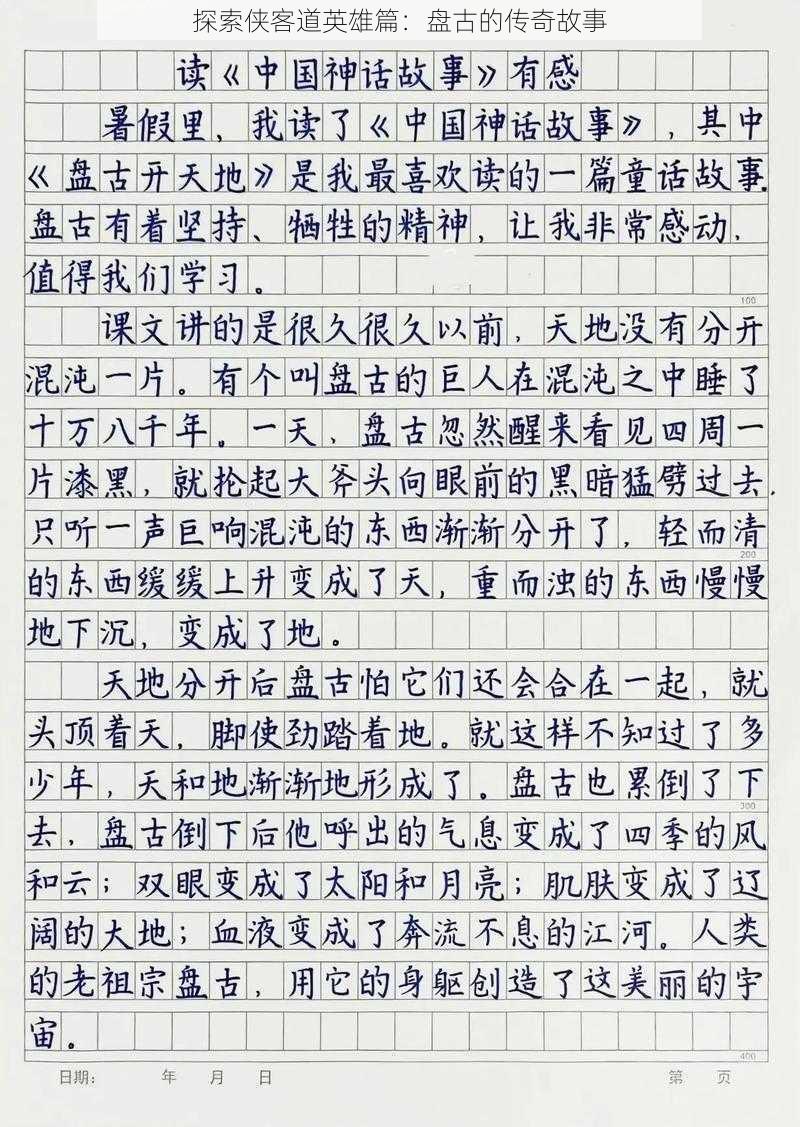 探索侠客道英雄篇：盘古的传奇故事
读《中国神话故事》有感
暑假里，我读了《中国神话故事》，其中
《盘古开天地》是我最喜欢读的一篇童话故事.
盘古有着坚持、牺牲的精神，让我非常感动，
值得我们学习。
100
课文讲的是很久很久以前，天地没有分开
混沌一片。有个叫盘古的巨人在混沌之中睡了
十万八千年。一天、盘古忽然醒来看见四周一
片漆黑，就抡起大斧头向眼前的黑暗猛劈过去，
只听一声巨响混沌的东西渐渐分开了，轻而清
200
的东西缓缓上升变成了天，重而浊的东西慢慢
地下沉，变成了地。
天地分开后盘古怕它们还会合在一起，就
头顶着天，脚使劲踏着地。就这样不知过了多
少年，天和地渐渐地形成了。盘古也累倒了下
300
去，盘古倒下后他呼出的气息变成了四季的风
和云；双眼变成了太阳和月亮；肌肤变成了辽
阔的大地；血液变成了奔流不息的江河。人类
的老祖宗盘古，用它的身躯创造了这美丽的宇
宙。
400
日期： 年 月 日 第 页